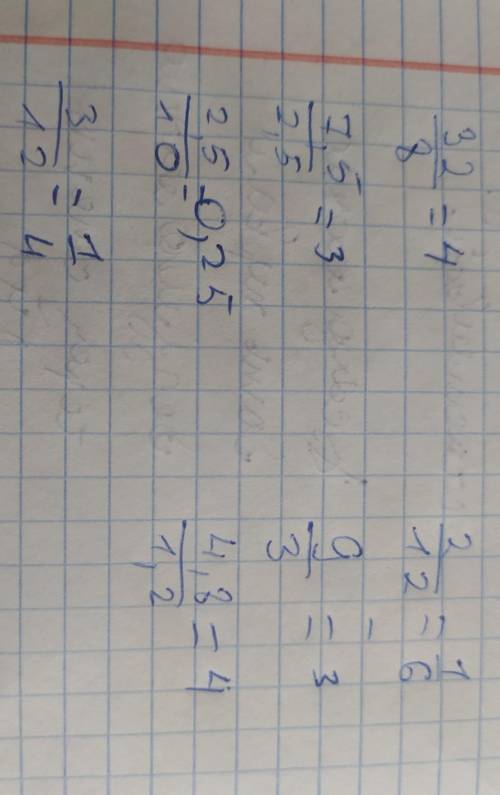 32/8 = 4
7,5/2,5 = 3
2,5/10 = 0,25
3/12 = 1/4
2/12 = 1/6
9/3 = 3
4,8/1,2 = 4